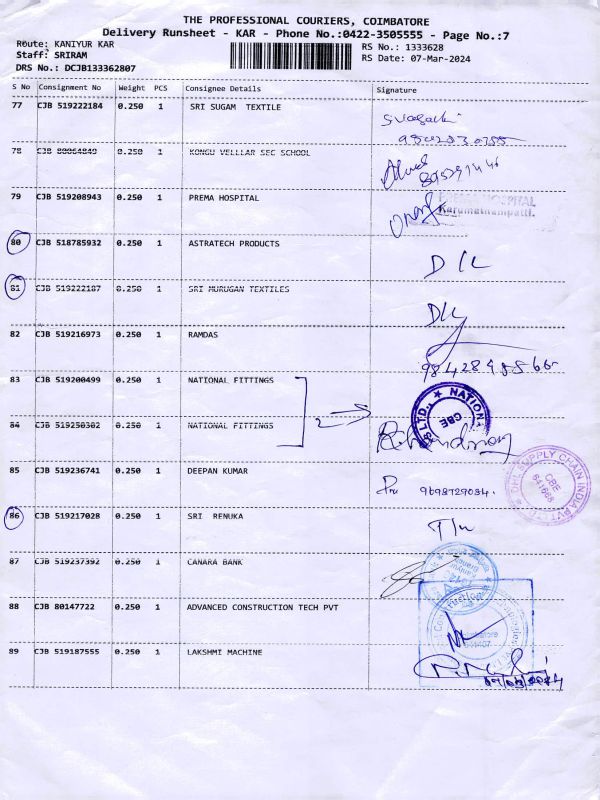 THE PROFESSIONAL COURIERS, COIMBATORE
Delivery Runsheet - KAR - Phone No.:0422-3505555 - Page No.:7
Route: KANIYUR KAR RS No.: 1333628
Staff: SRIRAM RS Date: 07-Mar-2024
DRS No.: DCJB133362807
S No Consignment No Weight PCS Consignee Details Signature
77 CJB 519222184 0.250 1 SRI SUGAM TEXTILE
78 CJB 88064849 0.250 1 KONGU VELLLAR SEC SCHOOL
79 CJB 519208943 0.250 1 PREMA HOSPITAL
HOSPITAL
Karumathampatti.
80 CJB 518785932 0.250 1 ASTRATECH PRODUCTS
D/L
81 CJB 519222187 0.250 1 SRI MURUGAN TEXTILES
D/L
82 CJB 519216973 0.250 1 RAMDAS
83 CJB 519200499 0.250 1 NATIONAL FITTINGS
2
NATION
LTD.
CBE
84 CJB 519250302 0.250 1 NATIONAL FITTINGS
85 CJB 519236741 0.250 1 DEEPAN KUMAR
9698729084.
DHL SUPPLY CHAIN INDIA PVT
CBE
641668
86 CJB 519217028 0.250 1 SRI RENUKA
87 CJB 519237392 0.250 1 CANARA BANK
88 CJB 80147722 0.250 1 ADVANCED CONSTRUCTION TECH PVT
89 CJB 519187555 0.250 1 LAKSHMI MACHINE